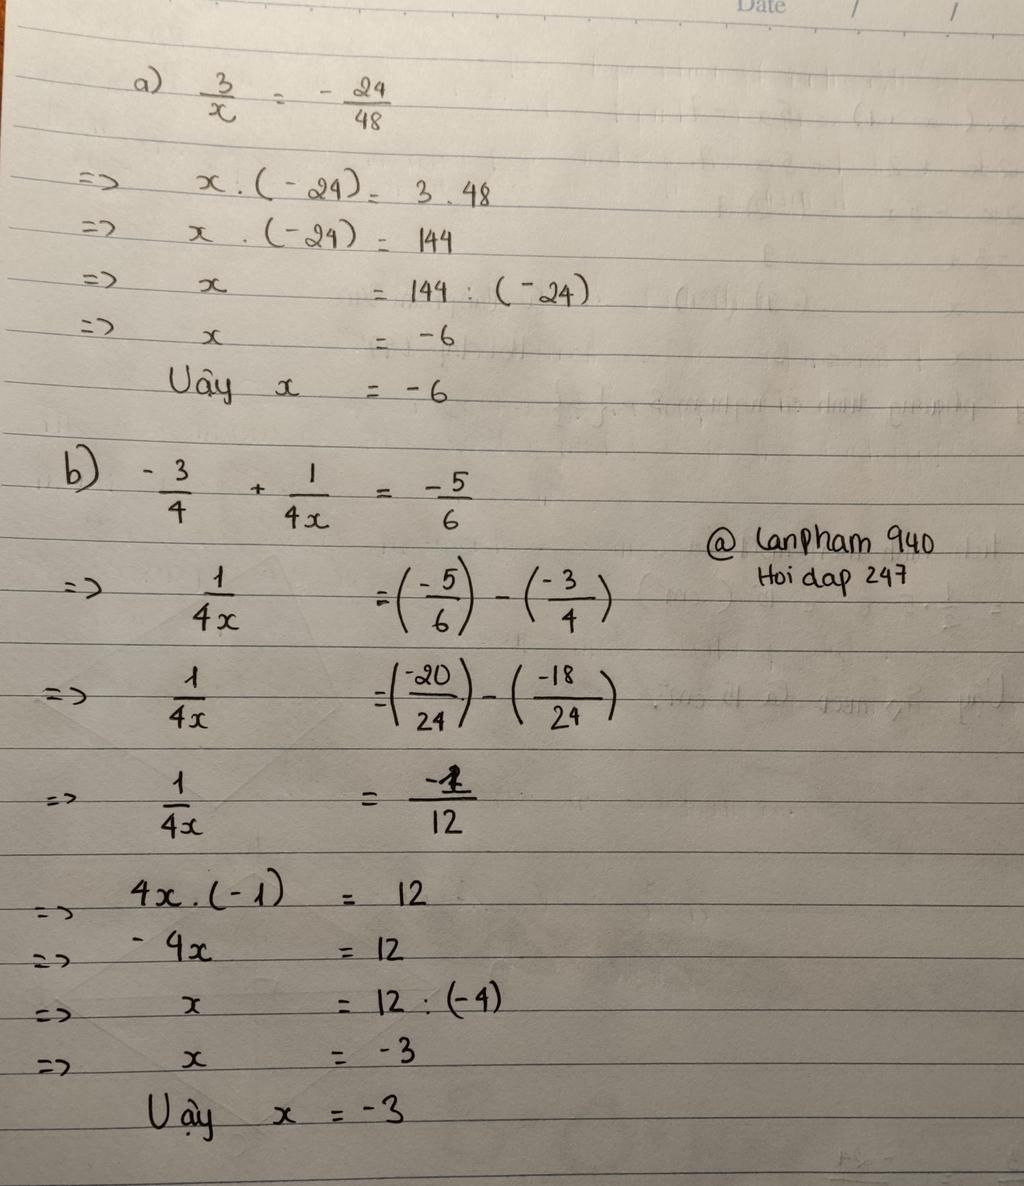 Date / /
a) 3/x = - 24/48
=> x . (-24) = 3 . 48
=> x . (-24) = 144
=> x = 144 : (-24)
=> x = -6
Vậy x = -6
b) -3/4 + 1/4x = -5/6
@ lanpham 940
Hoi dap 247
=> 1/4x = (-5/6) - (-3/4)
=> 1/4x = (-20/24) - (-18/24)
=> 1/4x = -1/12
=> 4x . (-1) = 12
=> -4x = 12
=> x = 12 : (-4)
=> x = -3
Vậy x = -3